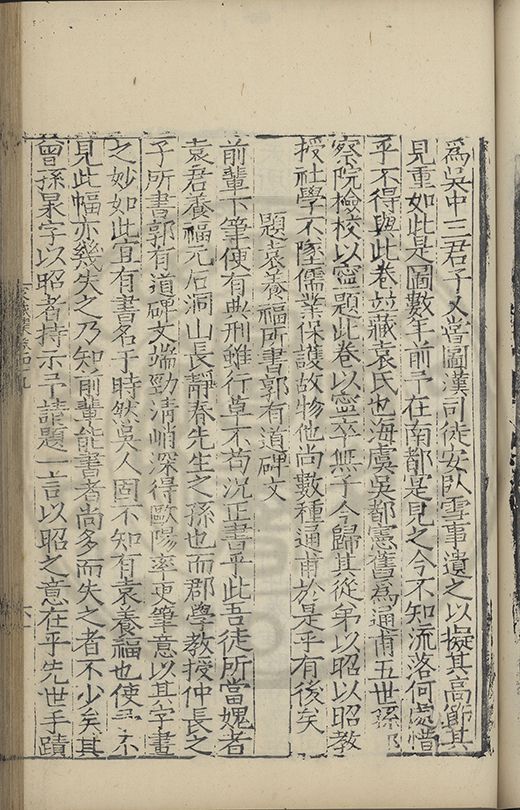 爲吳中三君子又嘗圖漢司徒安臥雪事遺之以擬其高節其
見重如此是圖數年前予在南都寔見之今不知流落何處惜
乎不得與此卷竝藏袁氏也海虞吳都憲舊爲通甫五世孫都
察院檢校以寧題此卷以寧卒無子今歸其從弟以昭以昭教
授社學不墜儒業保護故物他尚數種通甫於是乎有後矣
題袁養福所書郭有道碑文
前輩下筆便有典刑雖行草不苟況正書乎此吾徒所當媿者
袁君養福元石洞山長靜春先生之孫也而郡學教授仲長之
子所書郭有道碑文端勁清峭深得歐陽率更筆意以其字畫
之妙如此宜有書名于時然吳人固不知有袁養福也使予不
見此幅亦幾失之乃知前輩能書者尚多而失之者不少矣其
曾孫杲字以昭者持示予謹題一言以昭之意在乎先世手蹟